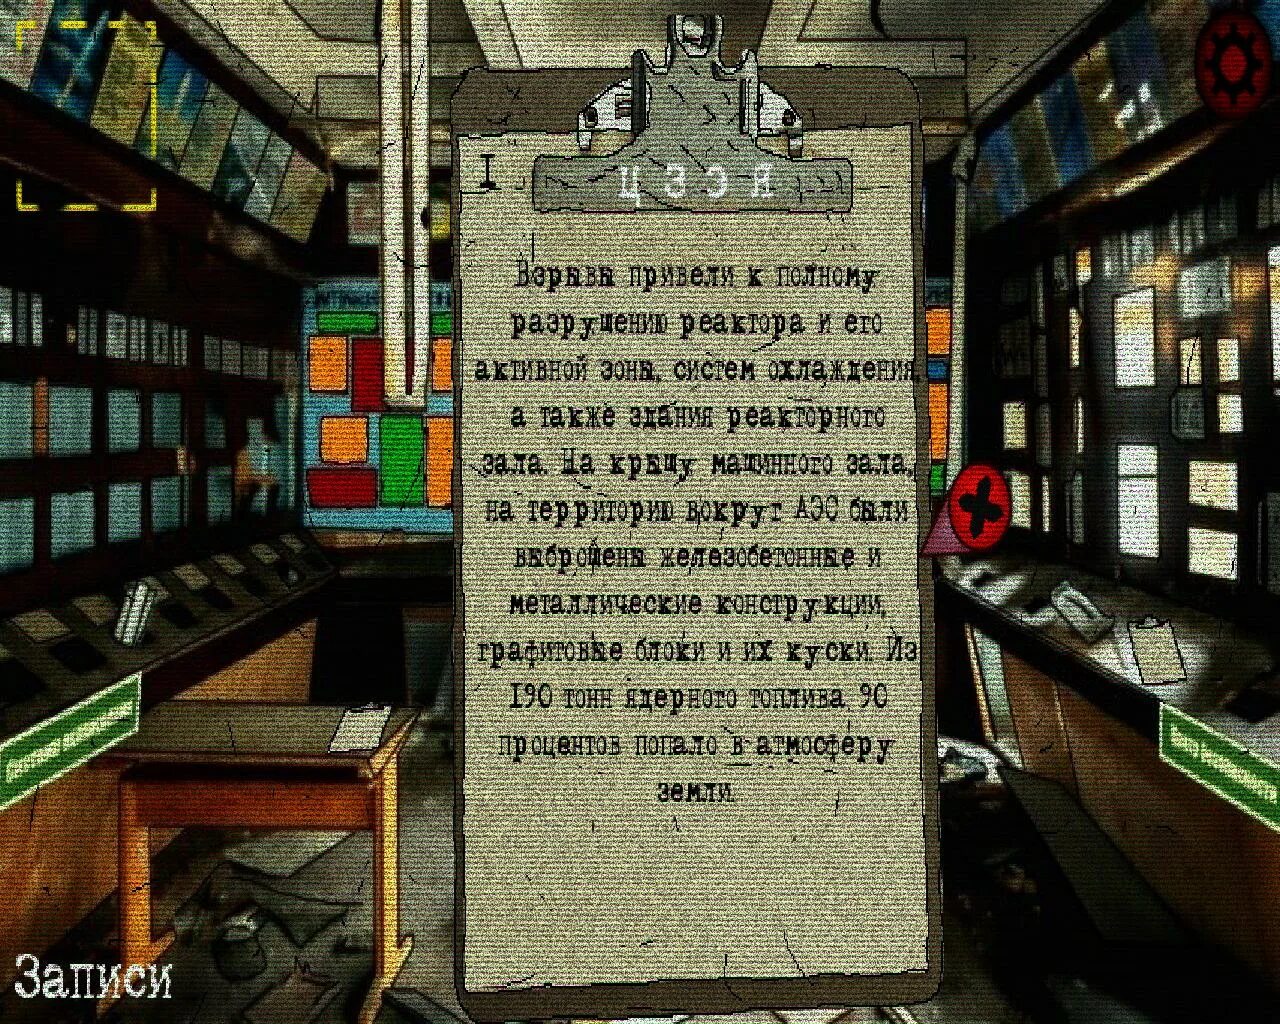 I
ЦЗЭЯ
Взрывы привели к полному
разрушению реактора и его
активной зоны, систем охлаждения,
а также здания реакторного
зала. На крышу машинного зала,
на территорию вокруг АЭС были
выброшены железобетонные и
металлические конструкции,
графитовые блоки и их куски. Из
190 тонн ядерного топлива, 90
процентов попало в атмосферу
земли.
Записи